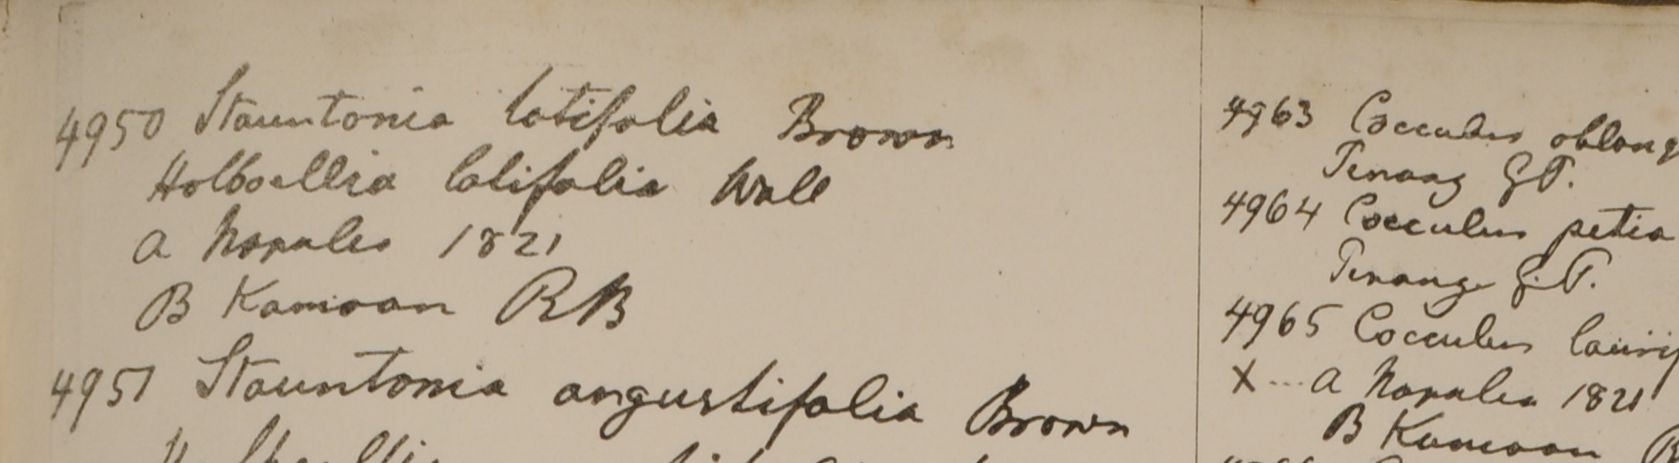 4950 Stauntonia latifolia Brown
Holboellia latifolia Wall
a Napalia 1821
B Kamoan RB
4951 Stauntonia angustifolia Brown
4963 Cocculus oblong
Penang G.P.
4964 Cocculus petio
Penang G.P.
4965 Cocculus lauri
X ... a Napalia 1821
B Kamoon